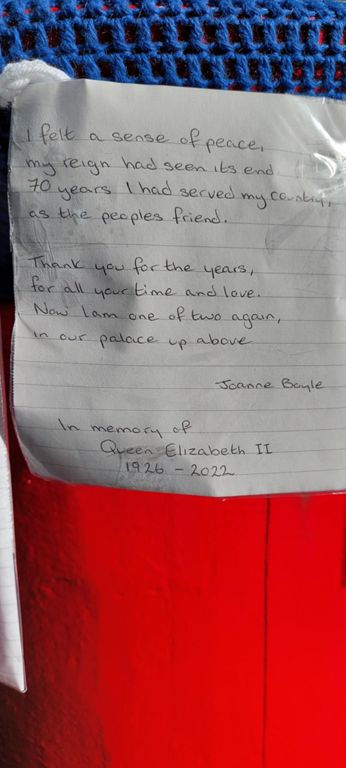 I felt a sense of peace,
my reign had seen its end
70 years I had served my country,
as the peoples friend.
Thank you for the years,
for all your time and love.
Now I am one of two again,
in our palace up above
Joanne Boyle
In memory of
Queen Elizabeth II
1926 - 2022